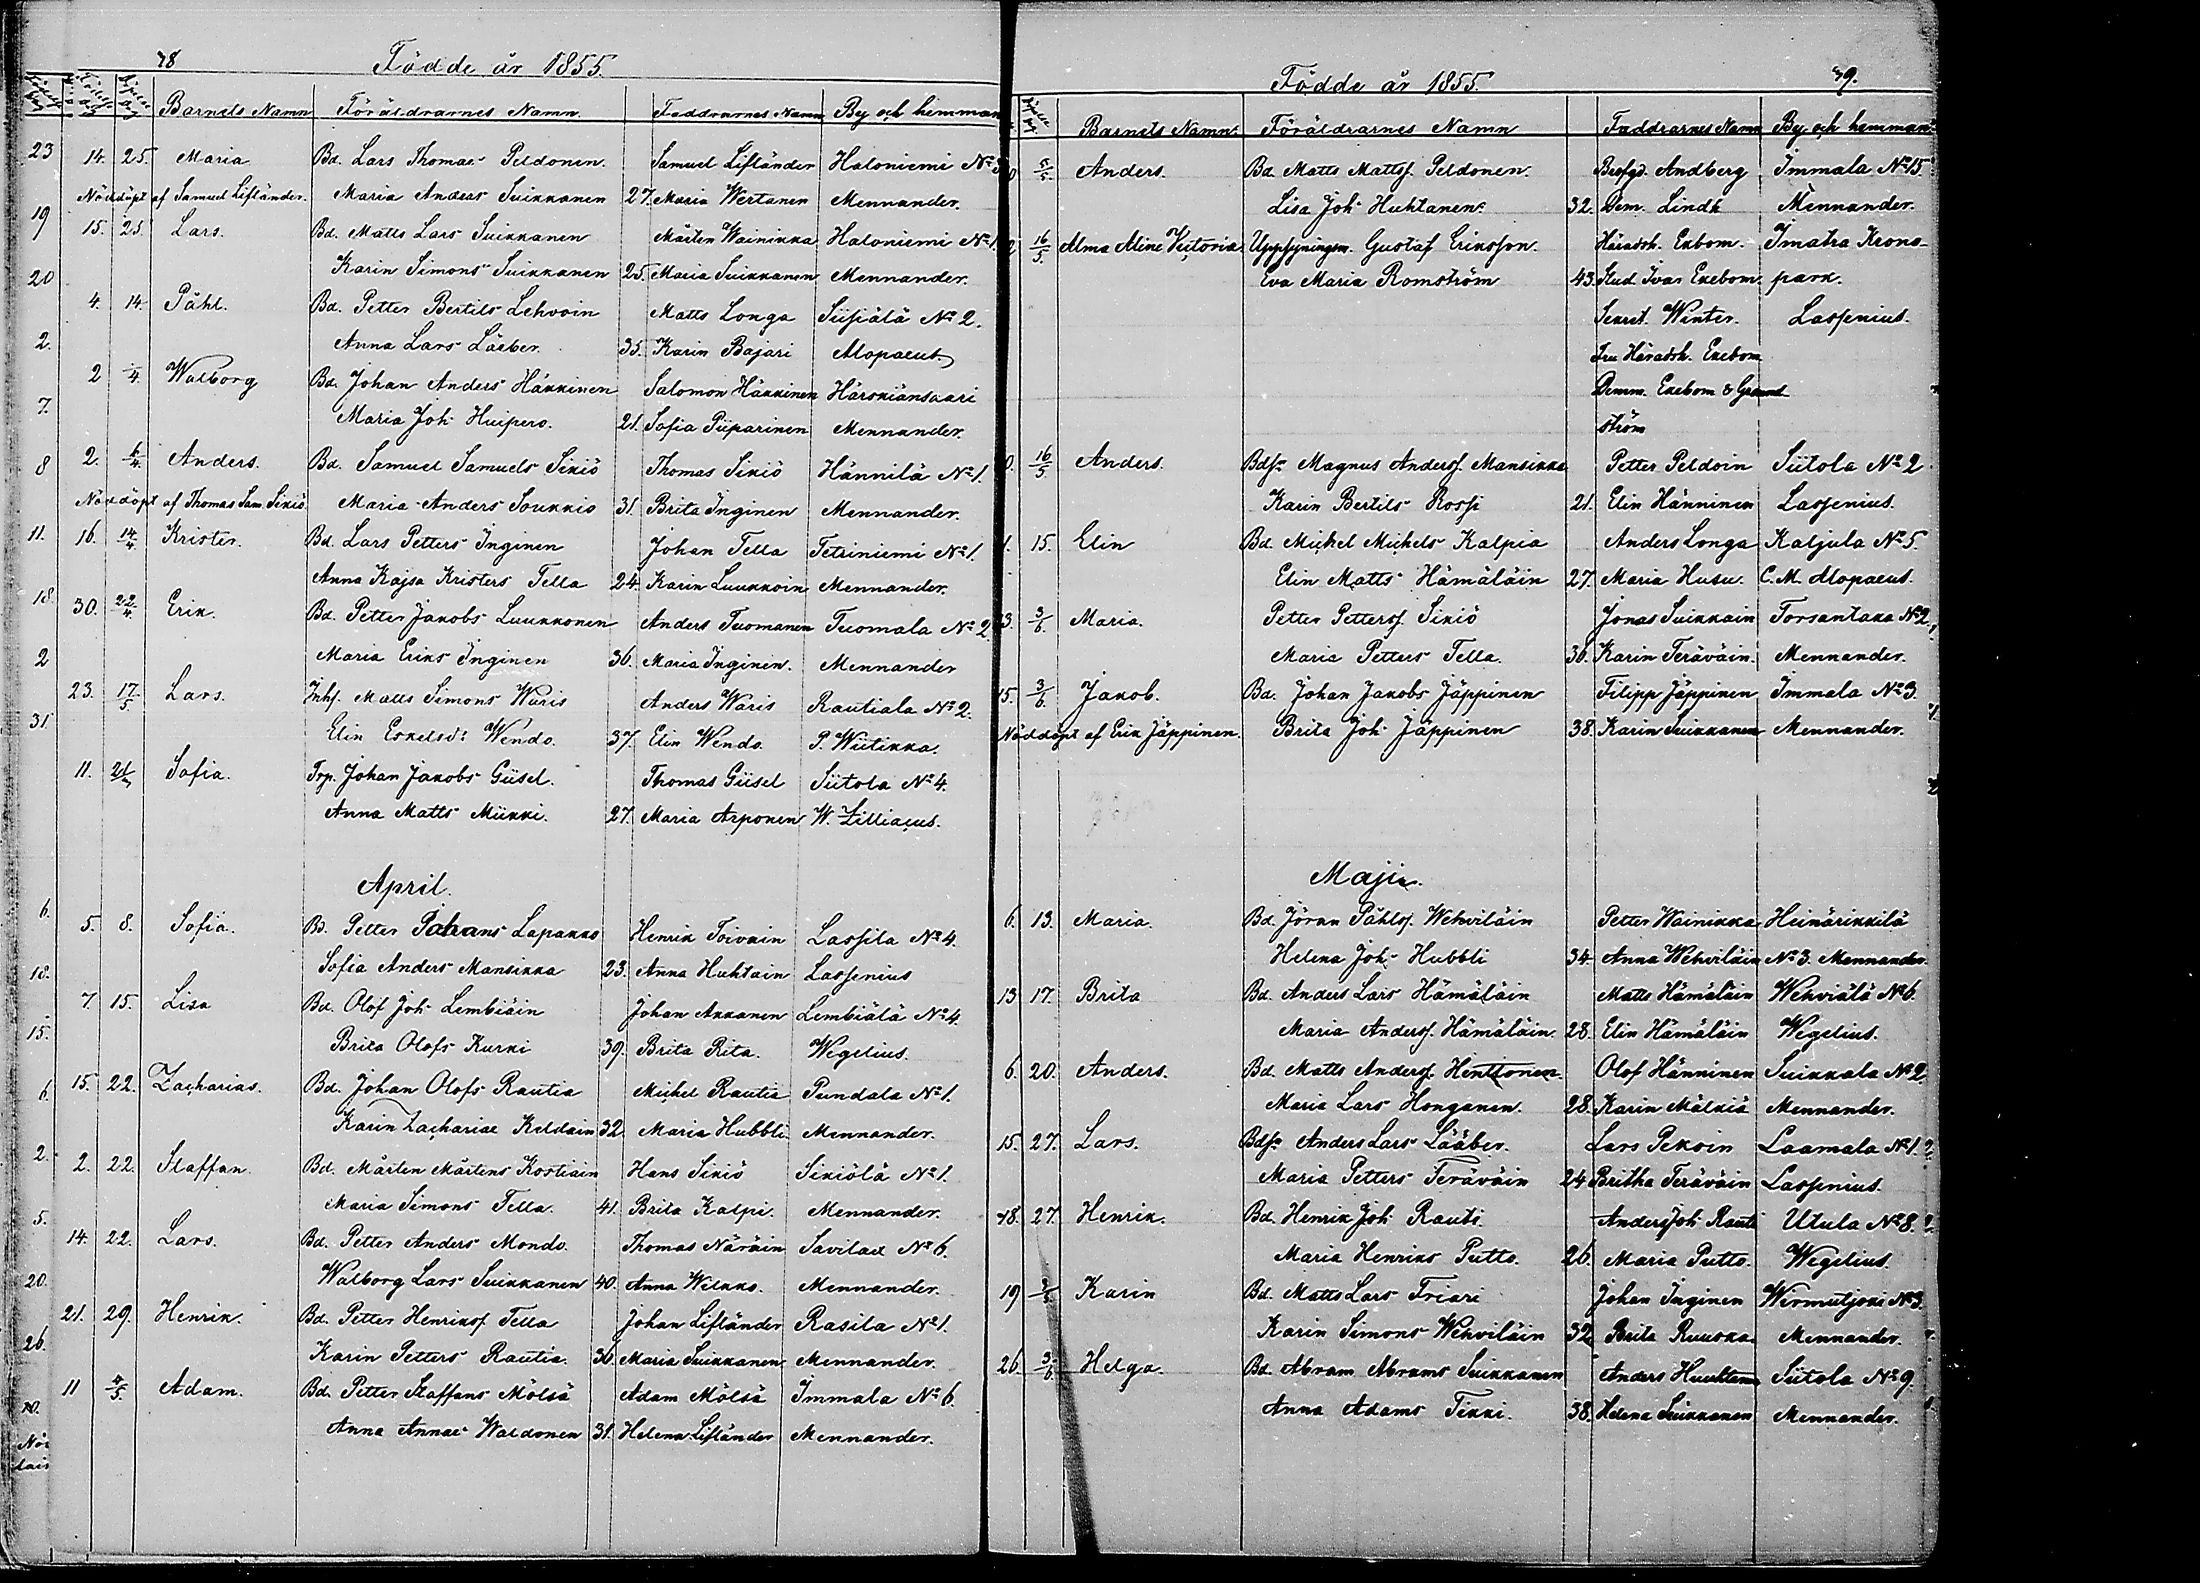 78
Födde år 1855.
Barnets Namn Föräldrarnes Namn. Faddrarnes Namn By och hemman
14. 25. Maria Bd. Lars Thomae Peldonen. Samuel Lifländer Haloniemi No
Nöddöpt af Samuel Lifländer. Maria Anders Suikkanen 27. Maria Wertanen Mennander.
15. 25. Lars. Bd. Matts Lars Suikkanen Mårten Wainikka Haloniemi No 1
Karin Simons Suikkanen 25. Maria Suikkanen Mennander.
4. 14. Påhl. Bd. Petter Bertils Lehvoin Matts Longa Siisiälä No 2.
Anna Lars Lääber. 35. Karin Bajari Alopaeus.
2 /4. Walborg Bd. Johan Anders Häkkinen Salomon Häkkinen Härskiänsaari
Maria Joh. Huipero. 21. Sofia Piiparinen Mennander.
2. 6/4. Anders. Bd. Samuel Samuels Sikiö Thomas Sikiö Hännilä No 1.
Nöddöpt af Thomas Sam. Sikiö. Maria Anders Soukkio 31. Brita Inginen Mennander.
16. 14/4. Krister. Bd. Lars Petters Inginen Johan Tella Tetriniemi No 1.
Anna Kajsa Kristers Tella 24. Karin Luukkoin Mennander.
30. 22/4. Erik. Bd. Petter Jakobs Luukkonen Anders Tuomanen Tuomala No 2
Maria Eriks Inginen 36. Maria Inginen. Mennander
23. 17/5 Lars. Inhs. Matts Simons Waris Anders Waris Rautiala No 2.
Elin Eskelsdr Wendo. 37. Elin Wendo. P. Wiitikka.
11. 21/ Sofia. Trp. Johan Jakobs Giisel. Thomas Giisel Siitola No 4.
Anna Matts Miikki. 27. Maria Arponen W. Lilliacus.
April.
5. 8. Sofia. Bd. Petter Johans Lapakko Henrik Toivain Lassila No 4.
Sofia Anders Mansikka 23. Anna Huhtain Lassenius
7. 15. Lisa Bd. Olof Joh. Lembiäin Johan Akkanen Lembiälä No 4.
Brita Olofs Kurki 39. Brita Rita. Wegelius.
15. 22. Zacharias. Bd. Johan Olofs Rautia Michel Rautia Pundala No 1.
Karin Zachariae Keldain 32. Maria Hubbli Mennander.
2. 22. Staffan. Bd. Mårten Mårtens Kostiain Hans Sikiö Sikiölä No 1.
Maria Simons Tella. 41. Brita Kalpi. Mennander.
14. 22. Lars. Bd. Petter Anders Mondo. Thomas Näräin Savilax No 6.
Walborg Lars Suikkanen 40. Anna Wilkko. Mennander.
21. 29. Henrik. Bd. Petter Henrikss. Tella Johan Lifländer Rasila No 1.
Karin Petters Rautia. 36. Maria Suikkanen Mennander.
11 /5. Adam. Bd. Petter Staffans Mölsä Adam Mölsä Immala No 6.
Anna Annae Waldonen 31. Helena Lifländer Mennander.
79.
Födde år 1855.
Barnets Namn. Föräldrarnes Namn Faddrarnes Namn By och hemman.
Anders. Bd. Matts Mattss. Peldonen. Andberg Immala No 15.
Lisa Joh. Huhtanen. 32. Dem. Lindh Mennander.
16/5. Alma Aline Victoria Uppsyningsm. Gustaf Eriksson. Häradsh. Exbom. Imatra Krono-
Eva Maria Romström 43. Stud. Ivar Exebom. park.
Sekret. Winter. Lassenius.
Fru Häradsh. Exebom
Demm. Exebom & Grand
ström
16/5 Anders. Bdsn Magnus Anderss. Mansikka Petter Peldoin Siitola No 2
Karin Bertils Rossi 21. Elin Hänninen Lassenius.
15. Elin Bd. Michel Michels Kalpia Anders Longa Kaljula No 5.
Elin Matts Hämäläin 27. Maria Husu. C. M. Alopaeus.
3/6. Maria. Petter Petterss. Sikiö Jonas Suikkain Torsantaka No 2.
Maria Petters Tella. 36. Karin Teräväin. Mennander.
15. 3/6. Jakob. Bd. Johan Jakobs Jäppinen Filipp Jäppinen Immala No 3.
Nöddöpt af Erik Jäppinen. Brita Joh. Jäppinen 38. Karin Suikkanen Mennander.
Maji.
6. 13. Maria. Bd. Jöran Påhlss. Wehviläin Petter Wainikka Heinärikkilä
Helena Joh. Hubbli 34. Anna Wehviläin No 3. Mennander.
13 17. Brita Bd. Anders Lars Hämäläin Matts Hämäläin Wehviälä No 6.
Maria Anderss. Hämäläin. 28. Elin Hämäläin Wegelius.
6. 20. Anders. Bd. Matts Anderss. Henttonen. Olof Hänninen Suikkala No 2
Maria Lars Honganen. 28. Karin Mälkiä Mennander.
15. 27. Lars. Bdsn Anders Lars Lääber. Lars Pekoin Laamala No 1.
Maria Petters Teräväin 24 Britha Teräväin Lassenius.
18. 27. Henrik. Bd. Henrik Joh. Rauti Anders Joh. Rauti Utula No 8.
Maria Henriks Putto. 26. Maria Putto. Wegelius.
19 Karin Bd. Matts Lars Friari Johan Inginen Wirmutjoki No 3.
Karin Simons Wehviläin 32 Brita Ruuska. Mennander.
26. 3/6 Helga. Bd. Abram Abrams Suikkanen Anders Huuhtanen Siitola No 9.
Anna Adams Tikki. 38. Helena Suikkanen Mennander.